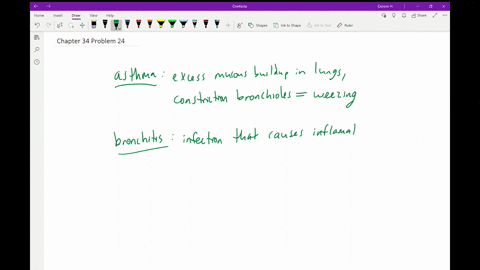 OneNote
File Home Insert Draw View Help
Shapes Ink to Shape
Chapter 34 Problem 24
asthma: excess mucous buildup in lungs,
constriction bronchioles = weezing
bronchitis: infection that causes inflamal